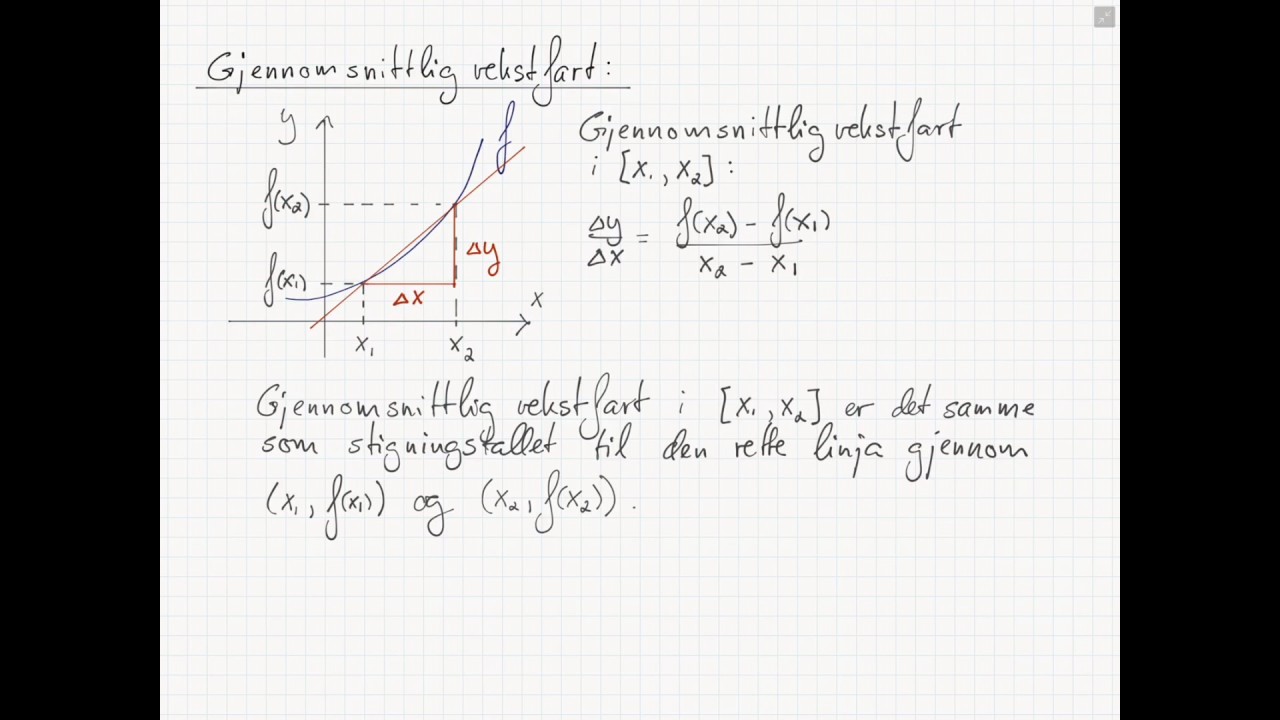 Gjennomsnittlig vekstfart:
y
f
f(x₂)
Δy
f(x₁)
Δx
x
x₁
x₂
Gjennomsnittlig vekstfart
i [x₁, x₂]:
Δy/Δx = (f(x₂) - f(x₁))/(x₂ - x₁)
Gjennomsnittlig vekstfart i [x₁, x₂] er det samme
som stigningstallet til den rette linja gjennom
(x₁, f(x₁)) og (x₂, f(x₂)).